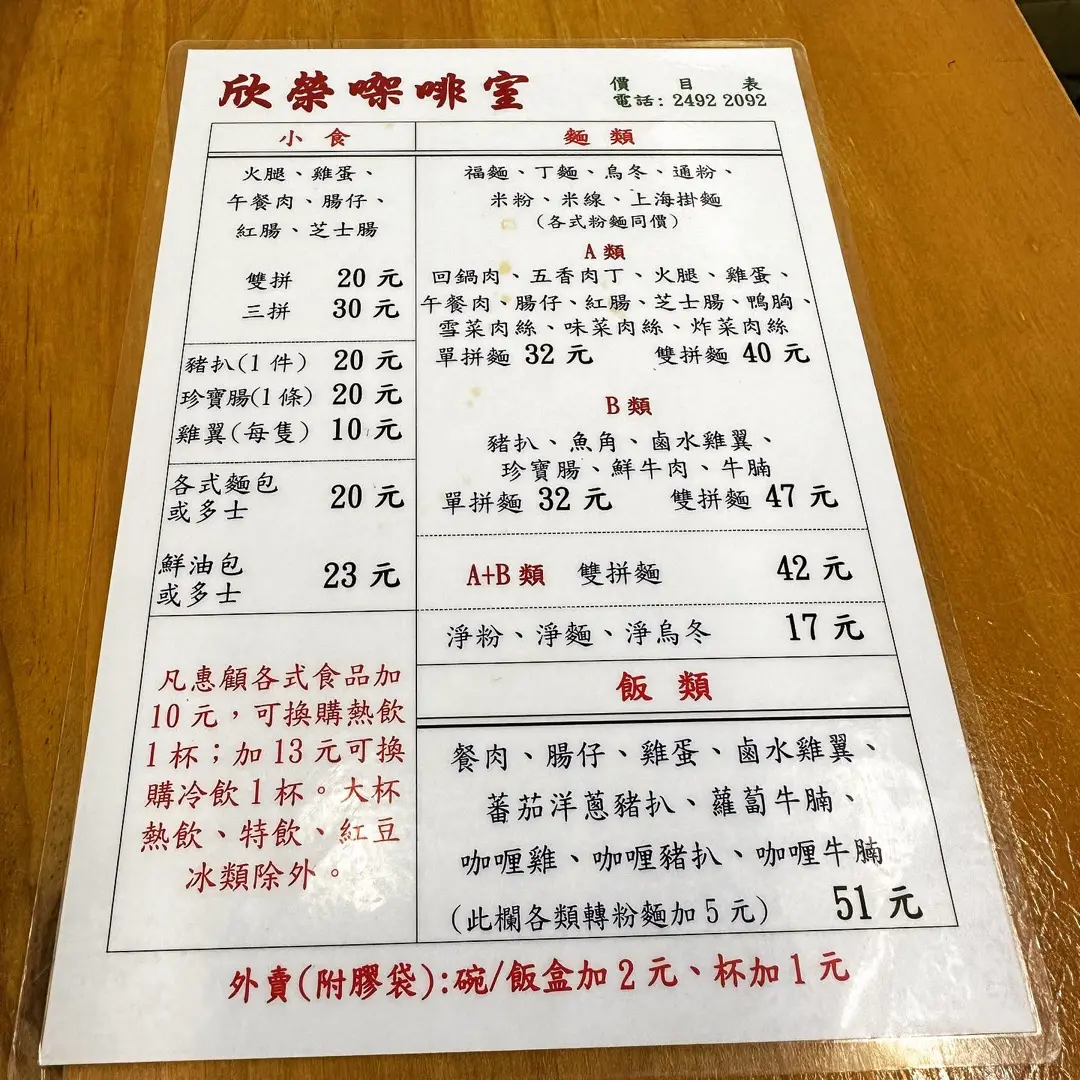 欣榮㗎啡室
價目表
電話: 2492 2092
小食
火腿、雞蛋、
午餐肉、腸仔、
紅腸、芝士腸
雙拼 20元
三拼 30元
豬扒(1件) 20元
珍寶腸(1條) 20元
雞翼(每隻) 10元
各式麵包
或多士 20元
鮮油包
或多士 23元
凡惠顧各式食品加
10元，可換購熱飲
1杯；加13元可換
購冷飲1杯。大杯
熱飲、特飲、紅豆
冰類除外。
麵類
福麵、丁麵、烏冬、通粉、
米粉、米線、上海掛麵
(各式粉麵同價)
A類
回鍋肉、五香肉丁、火腿、雞蛋、
午餐肉、腸仔、紅腸、芝士腸、鴨胸、
雪菜肉絲、味菜肉絲、炸菜肉絲
單拼麵 32元 雙拼麵 40元
B類
豬扒、魚角、鹵水雞翼、
珍寶腸、鮮牛肉、牛腩
單拼麵 32元 雙拼麵 47元
A+B類 雙拼麵 42元
淨粉、淨麵、淨烏冬 17元
飯類
餐肉、腸仔、雞蛋、鹵水雞翼、
蕃茄洋蔥豬扒、蘿蔔牛腩、
咖喱雞、咖喱豬扒、咖喱牛腩
(此欄各類轉粉麵加5元) 51元
外賣(附膠袋):碗/飯盒加2元、杯加1元